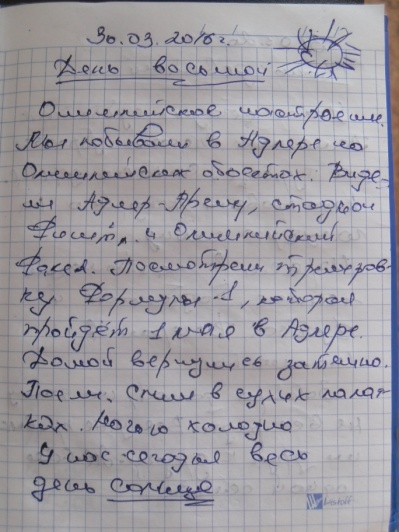 30.03.2016г.
День восьмой
Олимпийское настроение.
Мы побывали в Адлере на
Олимпийских объектах. Виде-
ли Адлер-Арену, стадион
Фишт, и Олимпийский
Факел. Посмотрели трениров-
ку Формулы-1, которая
пройдёт 1 мая в Адлере.
Домой вернулись затемно.
Поели. Спим в сухих палат-
ках. Ночью холодно
У нас сегодня весь
день солнце